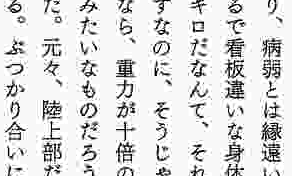 り、病弱とは縁遠い
るで看板違いな身体
キロだなんて、それ
すなのに、そうじゃ
なら、重力が十倍の
みたいなものだろう
た。元々、陸上部だ
る。ぶつかり合いに